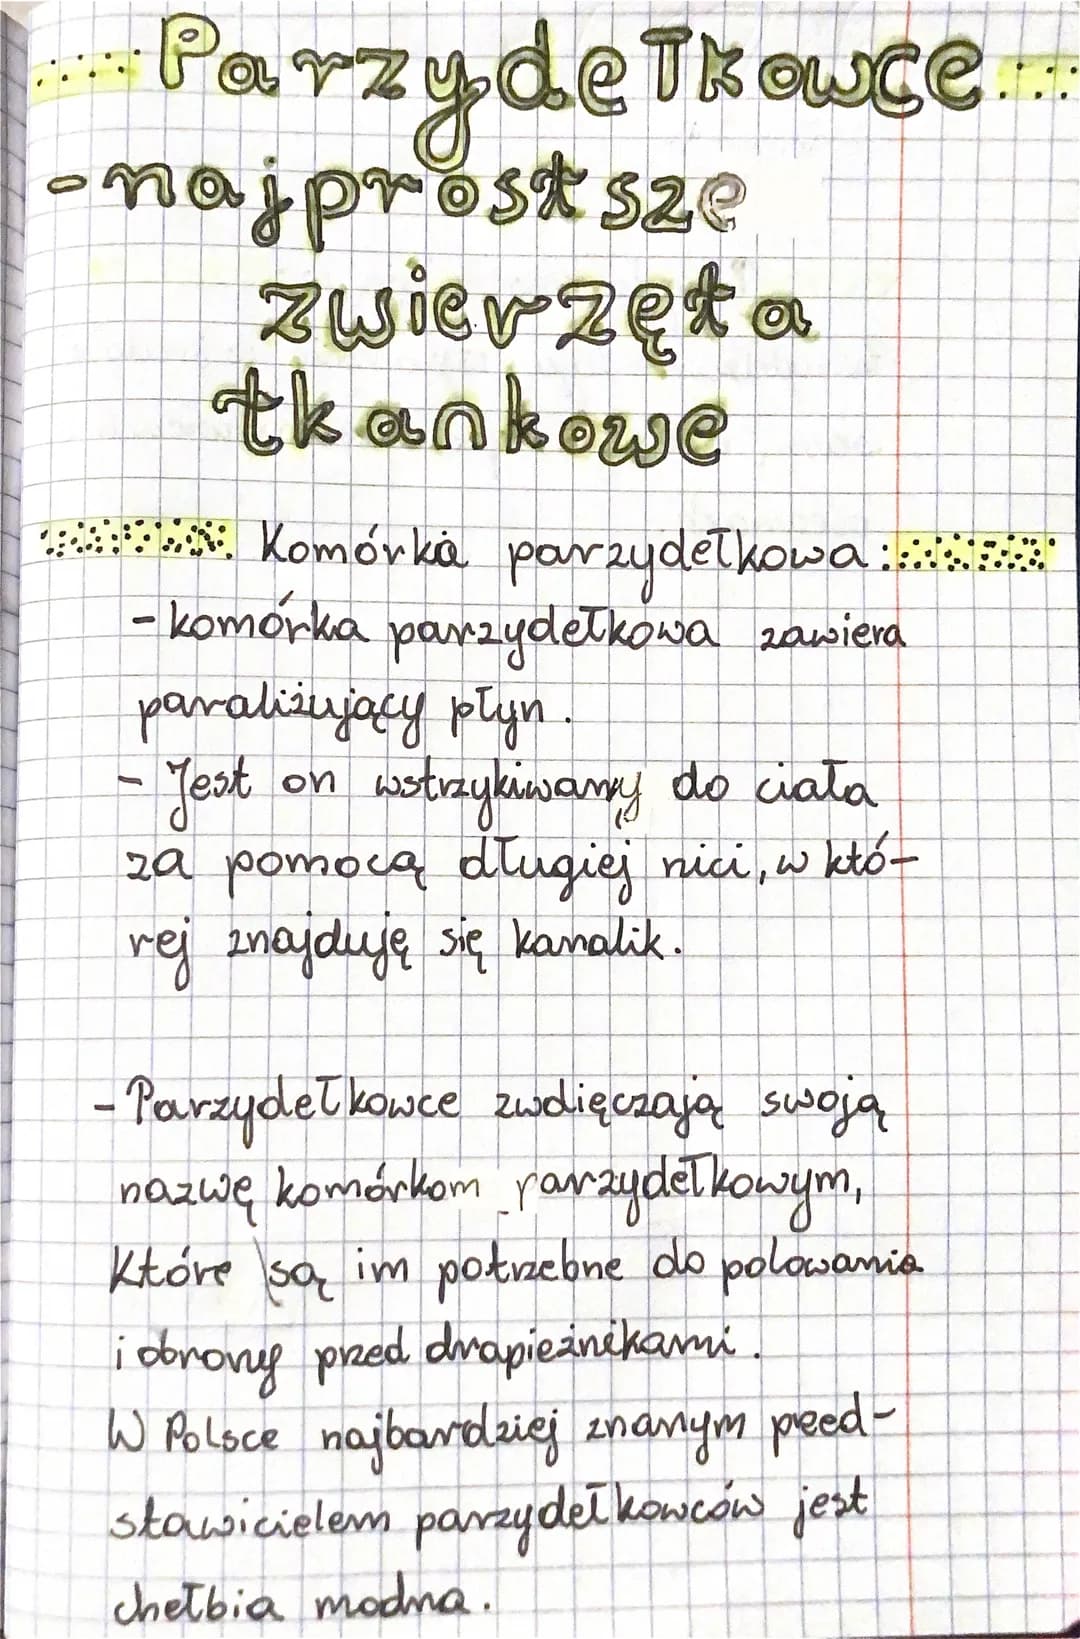 Parzydełkowce
-najprostsze
zwierzęta
tkankowe
Komórka parzydełkowa:
- komórka parzydełkowa zawiera
paraliżujący płyn.
- Jest on wstrzykiwany do ciała
za pomocą długiej nici, w któ-
rej znajduję się kanalik.
- Parzydełkowce zwdięczają swoją
nazwę komórkom parzydełkowym,
które są im potrzebne do polowania
i obrony przed drapieżnikami.
W Polsce najbardziej znanym pzed-
stawicielem parzydełkowców jest
chełbia modna.